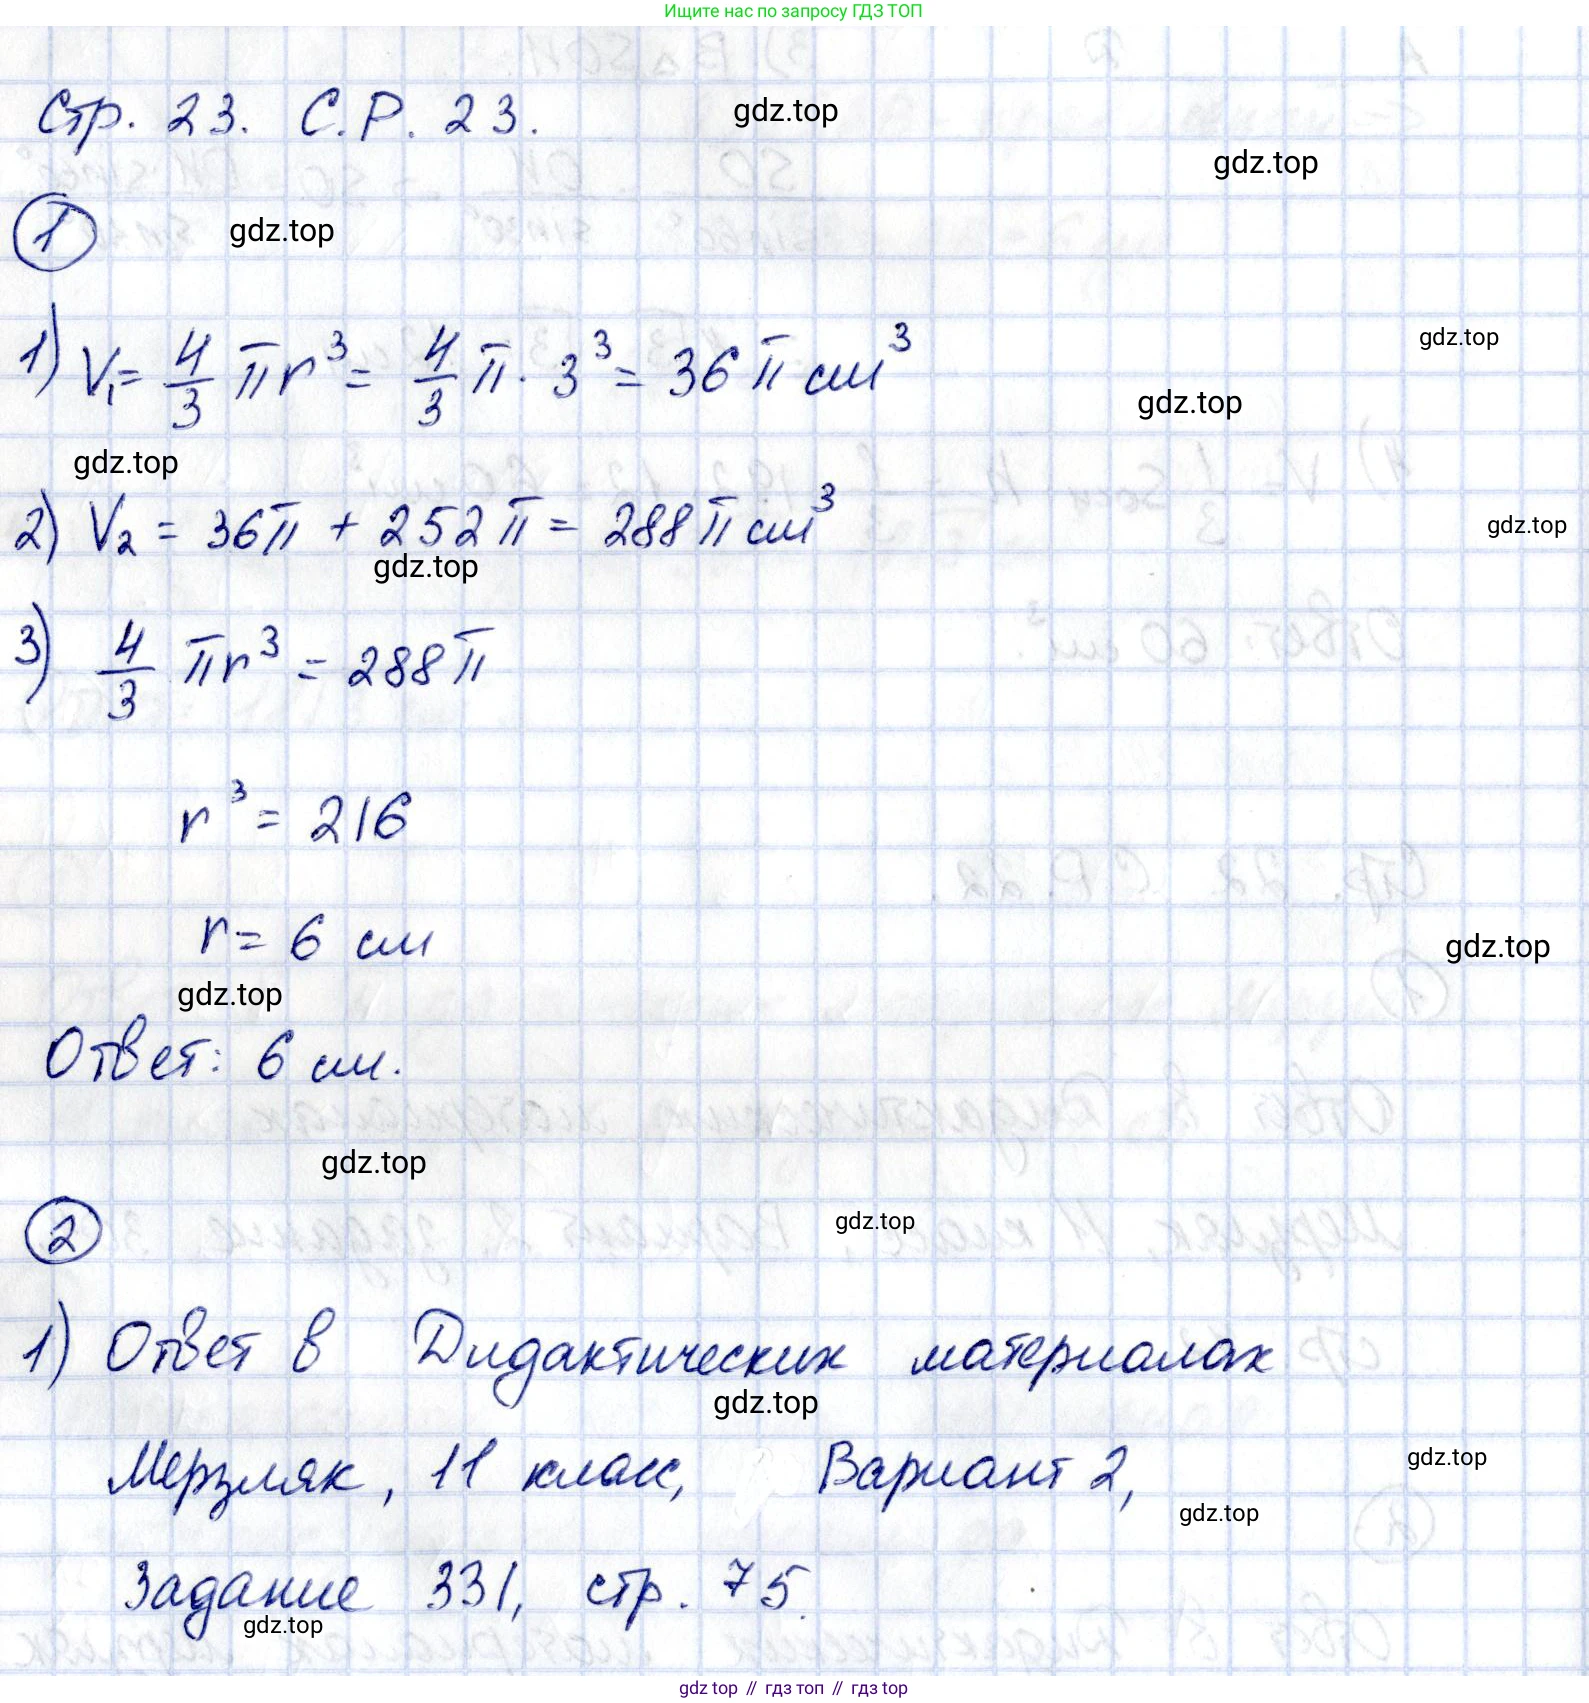 Ищите нас по запросу ГДЗ ТОП
Стр. 23. С.Р. 23.
gdz.top
gdz.top
1
gdz.top
1) V₁ = 4/3 πr³ = 4/3 π · 3³ = 36π см³
gdz.top
gdz.top
gdz.top
2) V₂ = 36π + 252π = 288π см³
gdz.top
gdz.top
3) 4/3 πr³ = 288π
r³ = 216
r = 6 см
gdz.top
gdz.top
Ответ: 6 см.
gdz.top
2
gdz.top
1) Ответ в Дидактических материалах
gdz.top
Мерзляк, 11 класс, Вариант 2,
gdz.top
gdz.top
Задание 331, стр. 75.
gdz.top
gdz.top // гдз топ // гдз top